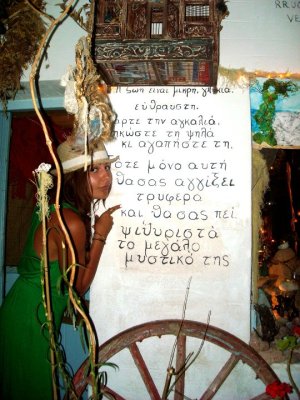 Η ζωή είναι μικρή, γλυκιά,
εύθραυστη.
άρτε την αγκαλιά,
ηκώστε τη ψηλά
κι αγαπήστε τη.
ότε μόνο αυτή
θα σας αγγίξει
τρυφερά
και θα σας πεί
ψιθυριστά
το μεγάλο
μυστικό της